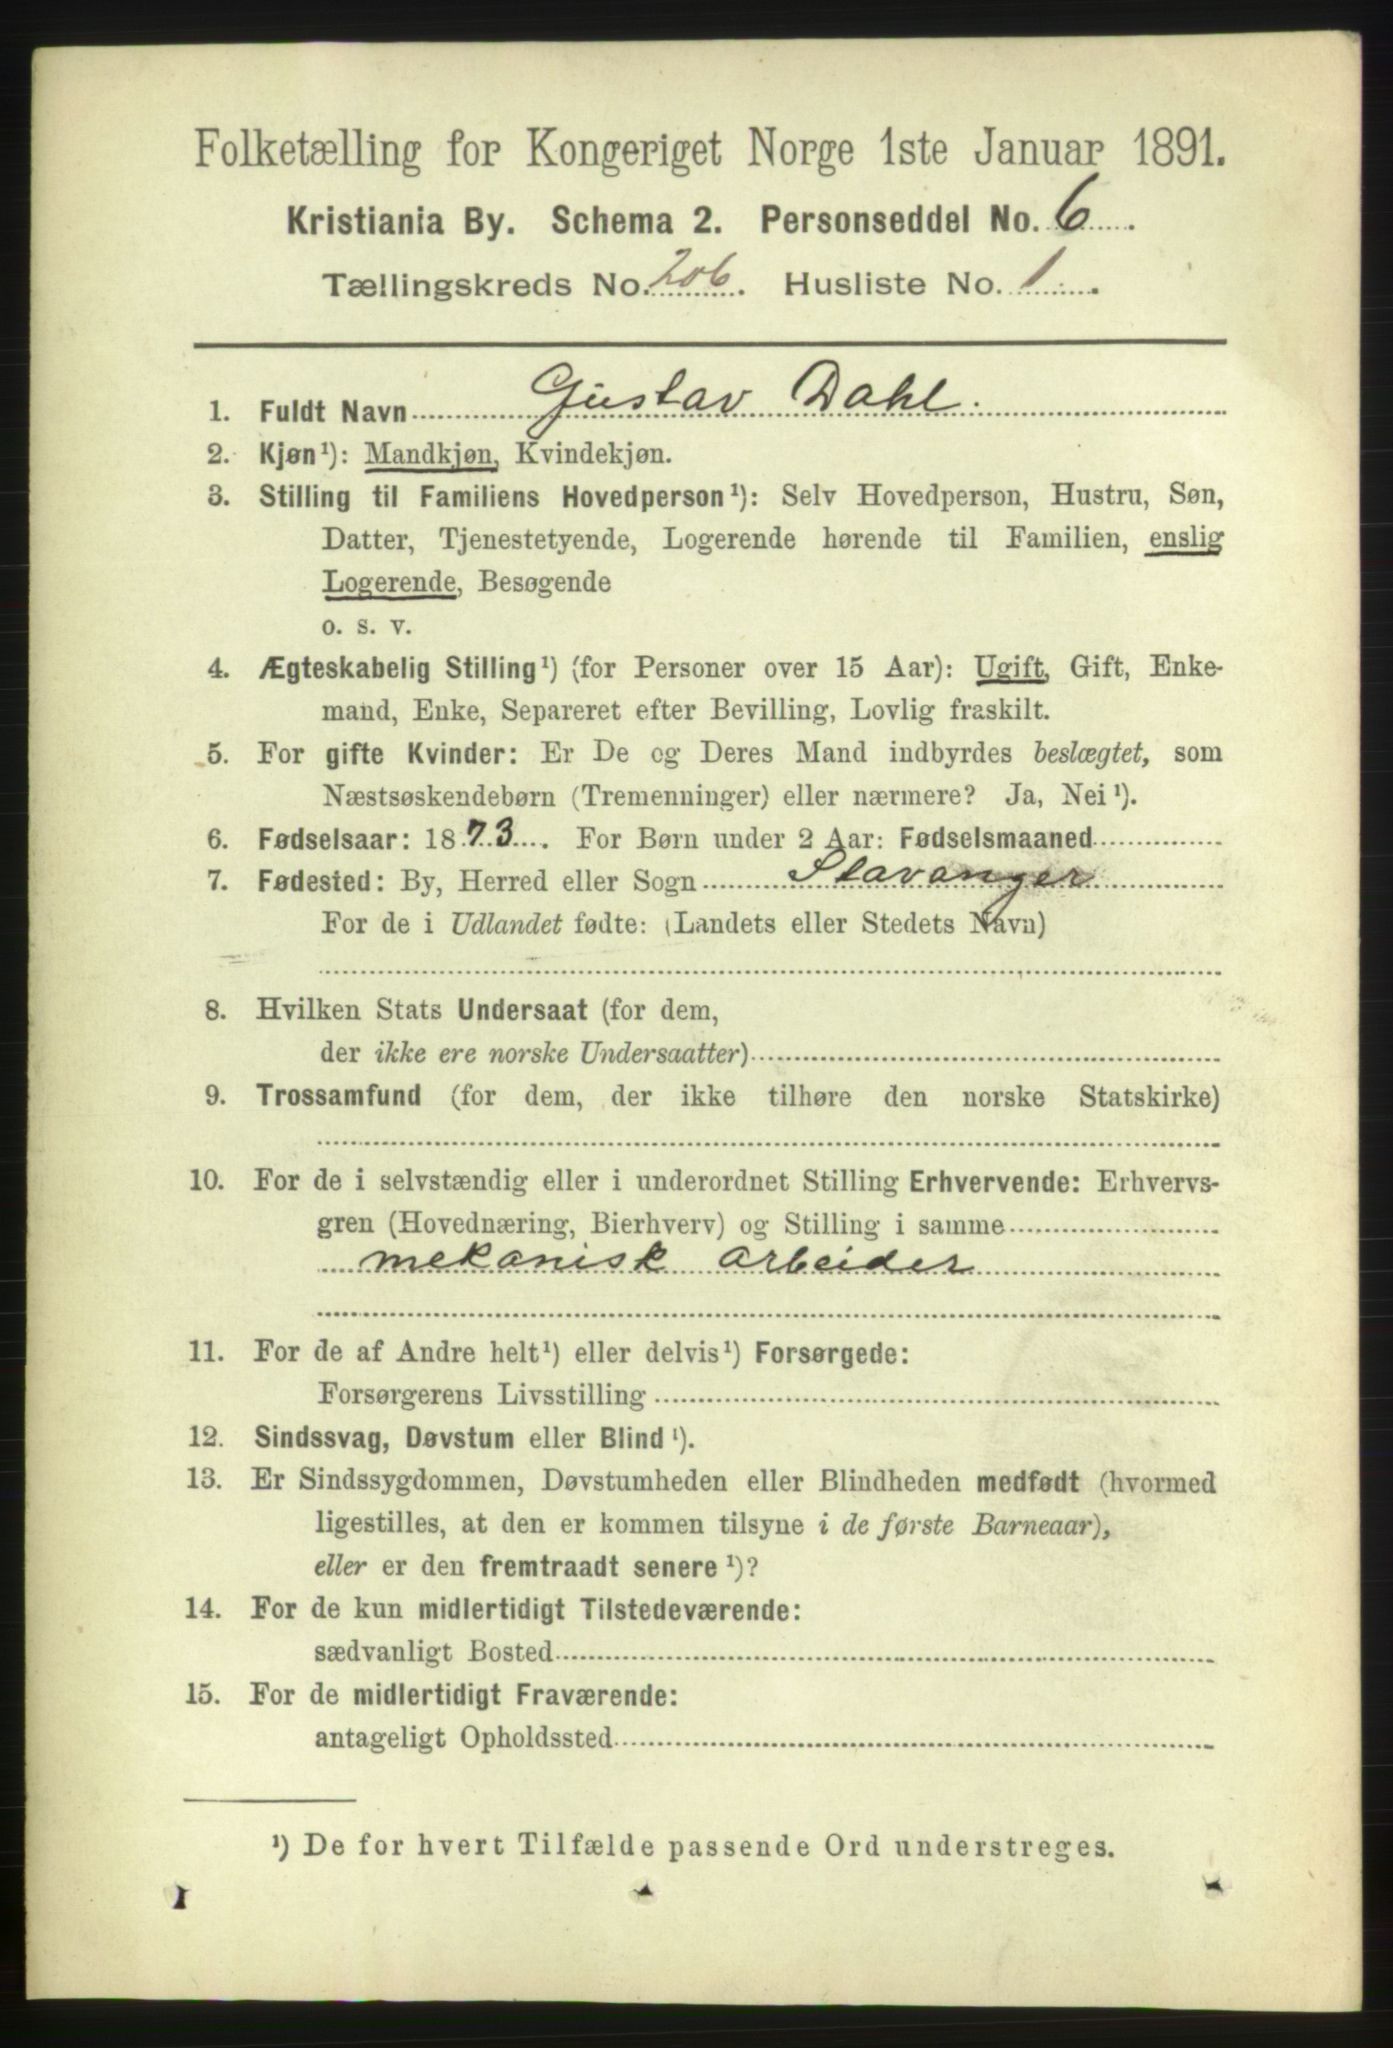 Folketælling for Kongeriget Norge 1ste Januar 1891.
Kristiania By. Schema 2. Personseddel No. 6
Tællingskreds No. 206. Husliste No. 1
1. Fuldt Navn Gustav Dahl.
2. Kjøn¹): Mandkjøn, Kvindekjøn.
3. Stilling til Familiens Hovedperson¹): Selv Hovedperson, Hustru, Søn,
Datter, Tjenestetyende, Logerende hørende til Familien, enslig
Logerende, Besøgende
o. s. v.
4. Ægteskabelig Stilling¹) (for Personer over 15 Aar): Ugift, Gift, Enke-
mand, Enke, Separeret efter Bevilling, Lovlig fraskilt.
5. For gifte Kvinder: Er De og Deres Mand indbyrdes beslægtet, som
Næstsøskendebørn (Tremenninger) eller nærmere? Ja, Nei¹).
6. Fødselsaar: 1873. For Børn under 2 Aar: Fødselsmaaned
7. Fødested: By, Herred eller Sogn Stavanger
For de i Udlandet fødte: (Landets eller Stedets Navn)
8. Hvilken Stats Undersaat (for dem,
der ikke ere norske Undersaatter)
9. Trossamfund (for dem, der ikke tilhøre den norske Statskirke)
10. For de i selvstændig eller i underordnet Stilling Erhvervende: Erhvervs-
gren (Hovednæring, Bierhverv) og Stilling i samme
mekanisk arbeider
11. For de af Andre helt¹) eller delvis¹) Forsørgede:
Forsørgerens Livsstilling
12. Sindssvag, Døvstum eller Blind¹).
13. Er Sindssygdommen, Døvstumheden eller Blindheden medfødt (hvormed
ligestilles, at den er kommen tilsyne i de første Barneaar),
eller er den fremtraadt senere¹)?
14. For de kun midlertidigt Tilstedeværende:
sædvanligt Bosted
15. For de midlertidigt Fraværende:
antageligt Opholdssted
¹) De for hvert Tilfælde passende Ord understreges.